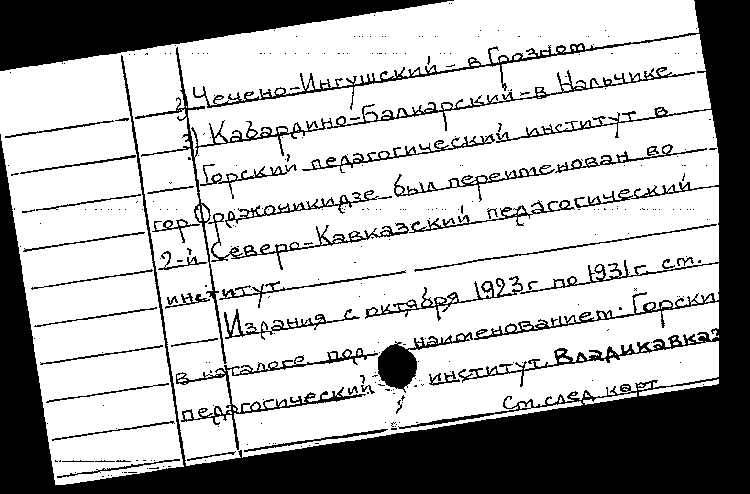 2) Чечено-Ингушский - в Грозном.
3) Кабардино-Балкарский - в Нальчике
Горский педагогический институт в
гор. Орджоникидзе был переименован во
2-й Северо-Кавказский педагогический
институт
Издания с октября 1923 г. по 1931 г. см.
в каталоге под наименованием: Горский
педагогический институт. Владикавказ
См. след. карт.